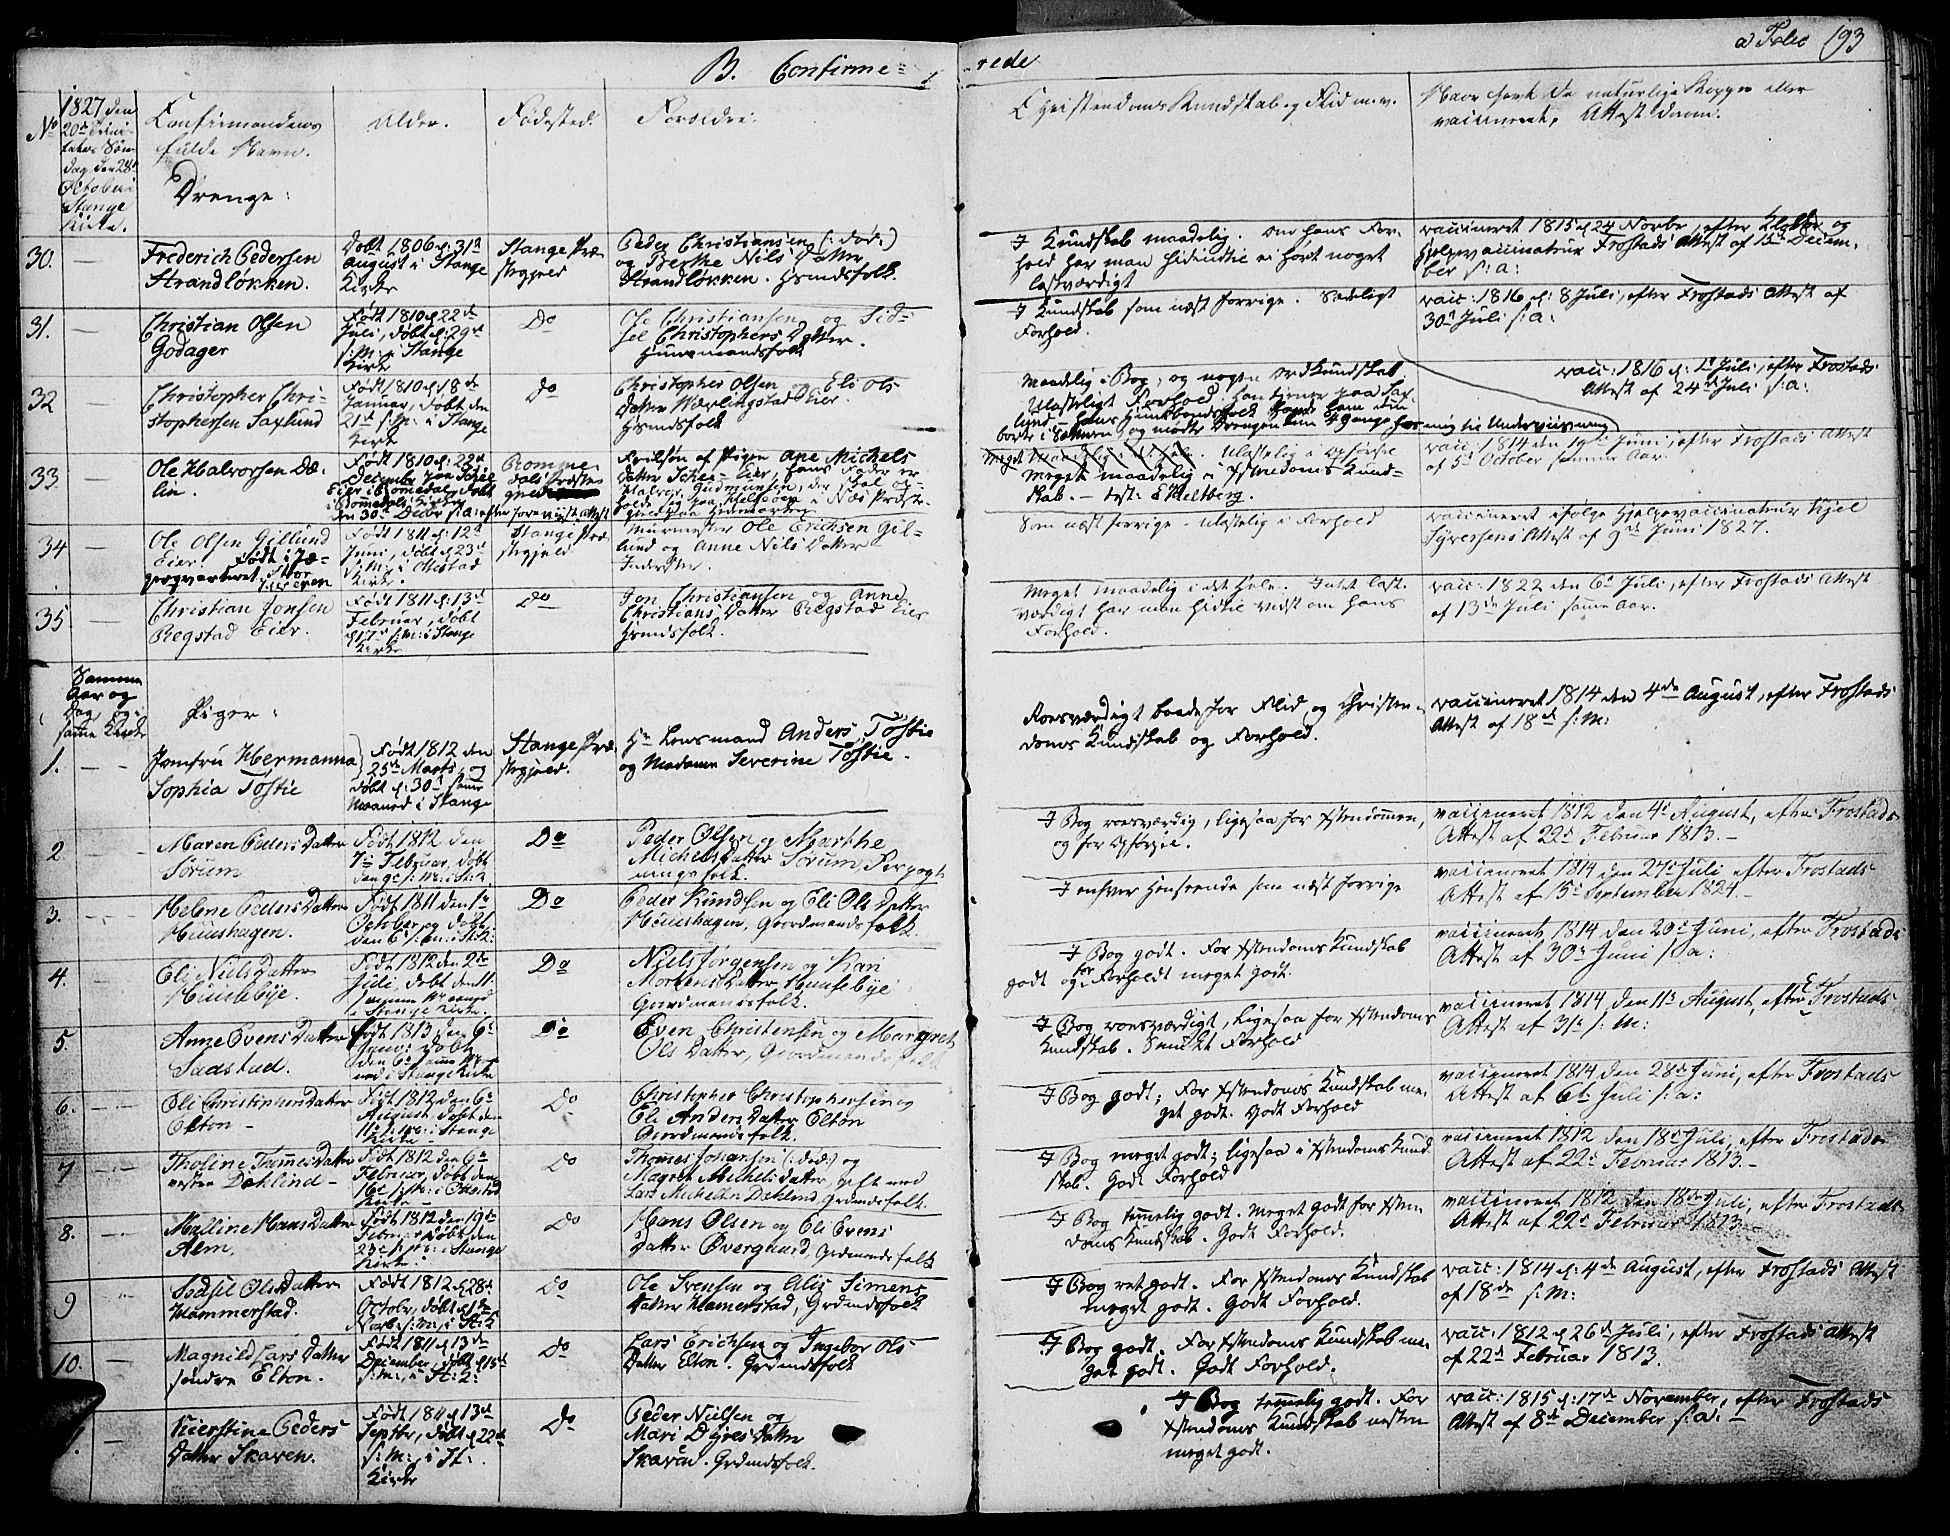 B. Confirme=
rede
a Folio 193
No
1827 den
20de Trini-
tatis Søn
dag den 28de
October i
Stange
Kirke.
Confirmandens
fulde Navn.
Alder.
Fødested.
Forældre.
Christendoms Kundskab og Flid m.v.
Naar havt de naturlige Kopper eller
vaccineret, Attest derom.
Drenge:
30.
Friderich Pedersen
Strandløkken.
Døbt 1806 d: 31te
August i Stange
Kirke
Stange Præ-
stegjeld
Peder Christiansen (: død:)
og Berthe Nils Datter
Strandløkken. Hsmdsfolk
I Kundskab maadelig. Om hans For-
hold har man hidindtil ei hørt noget
lastværdigt
vaccineret 1815 d 24 Novbr, efter Klokker og
Hjelpevaccinatrør Frostads Attest af 15de Decem-
ber s: a:
31.
Christian Olsen
Godager
Født 1810 d 22de
Juli, døbt d: 29de
s: M: i Stange
Kirke
Do
Ole Christiansen og Sid-
sel Christophers Datter.
Huusmandsfolk
I Kundskab som næst forrige. Sædeligt
Forhold.
vacc: 1816 d: 8 Juli, efter Frostads Attest af
30te Juli s: a:
32
Christopher Chri-
stophersen Saxlund
Født 1810 d: 18de
Januar, døbt den
21de s: M: i Stange
Kirke
Do
Christopher Olsen og Eli Ols
Datter Wærlingstad Eier.
Hsmdsfolk
Maadelig i Bog, og nogen Ords Kundskab
Ulasteligt Forhold. Han tjener paa Sax-
lund
vacc: 1816 d: 1te Juli, efter Frostads
Attest af 24de Juli s: a:
33
Ole Halvorsen Dæ-
lin.
Født 1810 d: 22de
December
Romme-
dals Præste-
gjeld
Ane Michels
Datter
Halvor Gudmunsen
Meget maadelig i Xstendoms Kund-
skab. - test: E Heltberg.
vacc: 1814 den 19de Juni, efter Frostads Attest
af 5te October samme Aar.
34
Ole Olsen Gillund
Eier. Født i Jæ-
gerqvarteret
Født 1811 d: 12te
Juni, døbt d 23de
s: M: i Ottestad
Kirke.
Stange Præ-
stegjeld
Muurmester Ole Erichsen Gil-
lund og Anne Nils Datter
Inderster.
Som næst forrige. Ulastelig i Forhold
vaccineret ifølge Hjelpevaccinatrør Kjel
Syversens Attest af 9de Juni 1827.
35
Christian Jonsen
Regstad Eier.
Født 1811 d: 13de
Februar, døbt
d 17de s: M: i Stange
Kirke
Do
Jon Christiansen og Anne
Christians Datter Regstad Eier
Hsmdsfolk.
Meget maadelig i det Hele. Intet last-
værdigt har man hidtil vidst om hans
Forhold.
vacc: 1822 den 6te Juli, efter Frostads Attest
af 13de Juli samme Aar.
Samme
Aar og
Dag og i
samme Kirke
Piger:
1.
Jomfru Hermanna
Sophia Tostie
Født 1812 den
25de Marts, og
døbt d: 30te samme
Maaned i Stange
Stange Præ-
stegjeld.
Hr Lensmand Anders Tostie
og Madame Severine Tostie.
Roesværdigt baade for Flid og Christen-
doms Kundskab og Forhold.
vaccineret 1814 den 4de August, efter Frostads
Attest af 18de s: M:
2
Maren Peders Datter
Sørum
Født 1812 den
7de Februar, døbt
den 9de s: M: i St: K
Do
Peder Olsen og Marthe
Michels Datter Sørum, Forpagt-
ningsfolk.
I Bog roesværdig, ligesaa for Xstendommen,
og for Opførsel.
vaccineret 1812 den 4de August, efter Frostads
Attest af 22de Februar 1813.-
3.
Helene Peders Datter
Huushagen.
Født 1811 den 1te
October, og døbt
den 6te s: m: i St: K:
Do
Peder Knudsen og Eli Ols Datter
Huushagen, Gaardmandsfolk
I enhver Henseende som næst forrige
vaccineret 1814 den 27de Juli, efter Frostads
Attest af 15de September 1824.-
4.
Eli Niels Datter
Huusebye.
Født 1812 den 2de
Juli, døbt den 11te
samme Maaned
i Stange Kirke.
Do
Niels Jørgensen og Kari
Mortens Datter Huusebye
Gaardmandsfolk.
I Bog godt. For Xstendoms Kundskab
godt og for Forholdt meget godt.
vaccineret 1814 den 20de Juni, efter Frostads
Attest af 30te Juni s: a:
5.
Anne Evens Datter
Sadstad.
Do
Even Christensen og Margret
Ols Datter, Gaardmandsfolk
I Bog roesværdigt, ligesaa for Xstendoms
Kundskab. Smukt Forhold
vaccineret 1814, den 11te August, efter Frostads
Attest af 31te s: M:
6.
Oli Christophers Datter
Elton -
Født 1812 den 6te
August, døbt den
11te s: m: i Stange
Kirke -
Do
Christopher Christophersen og
Oli Anders Datter Elton
Gaardmandsfolk.
I Bog godt; For Xstendoms Kundskab me-
get godt. Godt Forhold
vaccineret 1814 den 28de Juni, efter Frostads
Attest af 6te Juli s: a:
7
Tholine Tomes Datter
vestre Dæhlind -
Født 1812 den 6te
Februar, døbt den
16de s: M: i Ottestad
Kirke
Do
Thomes Johansen (: død:) og
Magret Michels Datter, gift med
Lars Michelsen Dæhlend, Grdmdsfolk.
I Bog meget godt; ligesaa i Xstendoms Kund-
skab. Godt Forhold
vaccineret 1812 den 18de Juli, efter Frostads
Attest af 22de Februar 1813.-
8.
Mælline Hans Datter
Alm.
Født 1812 den 19de
Februar, døbt den
23de s: m: i Stange
Kirke.
Do
Hans Olsen og Eli Evens
Datter Øvergaard, Grdmandsfolk
I Bog temmelig godt. Meget godt for Xsten-
doms Kundskab. Godt Forhold.
vaccineret 1812 den 18de Juli, efter Frostads
Attest af 22de Februar 1813.-
9
Sidsel Ols Datter
Hommerstad.
Født 1812 d 28de
Octobr, døbt d 1te
Novbr: s: M:, i St: K
Do
Ole Svensen og Alis Simens
Datter Hamerstad, Grdmdsfolk
I Bog ret godt. For Xstendoms Kundskab
meget godt. Godt Forhold.
vacc: 1814 d: 4de August, efter Frostads Attest
af 18de s: M:
10.
Magnild Lars Datter
søndre Elton.
Født 1811 d: 13de
December, døbt d 15de
s: M:, i St: K:
Do
Lars Erichsen og Ingebor Ols
Datter Elton. Grdmdsfolk
I Bog godt. For Xstendoms Kundskab me-
get godt. Godt Forhold.
vacc: 1812 d 26de Juli, efter Frostads Attest
af 22de Februar 1813.
Kierstine Peders
Datter Skaven.
Født 1811 d 13de
Septbr, døbt d 22de
s: M:, i St:
Kirke
Do
Peder Nielsen og
Mari Dyres Datter
Skaven. Grdmdsfolk.
I Bog temmelig godt. For
Xstendoms Kundskab næsten
meget godt.
vacc: 1815 d: 17de November, efter Frostads
Attest af 8de December s: a: -